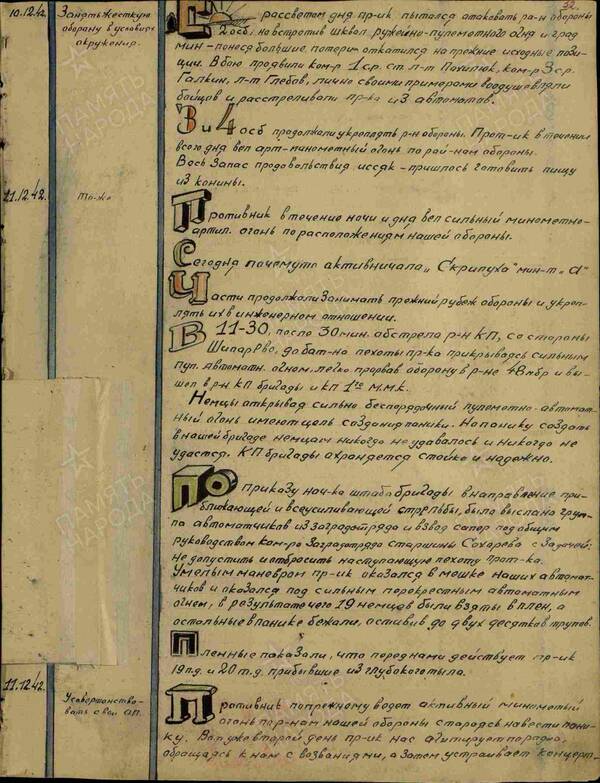 32.
10.12.42.
Занять жесткую
оборону в условиях
окружения.
С рассветом дня пр-ик пытался атаковать ра-н обороны
2 осб, но встротив шквол ружейно-пулеметного огня и град
мин - понеся большие потери откатился на прежние исходные пози-
ции. В бою проявили ком-р 1 ср. ст. л-т Похилюк, ком-р 3 ср.
Галкин, л-т Глебов, лично своими примерами воодушевляли
бойцов и расстреливали пр-ка из автоматов.
3 и 4 осб продолжали укреплять р-н обороны. Прот-ик в течении
всего дня вел арт-минометный огонь по рай-нам обороны.
Весь запас продовольствия иссяк - пришлось готовить пищу
из конины.
11.12.42.
То-же
Противник в течение ночи и дня вел сильный минометно-
артил. огонь по расположениям нашей обороны.
Сегодня почемуто активничала „Скрипуха" мин-т „d"
Части продолжали занимать прежний рубеж обороны и укреп-
лять их в инженерном отношении.
В 11-30, после 30 мин. обстрела р-н КП, со стороны
до бат-на пехоты пр-ка прикрываясь сильным
пул. автоматн. огнем, легко прорвав оборону в р-не 48 тбр и вы-
шел в р-н КП бригады и КП 1го М.М.К.
Немцы открывая сильно беспорядочный пулеметно-автомат-
ный огонь имеют цель создания паники. Но панику создать
в нашей бригаде немцам никогда не удавалось и никогда не
удастся. КП бригады охраняется стойко и надежно.
По приказу нач-ка штаба бригады в направление при-
ближающей и всеусиливающей стрельбы, была выслана груп-
па автоматчиков из заградотряда и взвод сапер под общим
руководством ком-ра Заградотряда старшины Сохарева с задачей:
не допустить и отбросить наступающую пехоту прот-ка.
Умелым маневром пр-ик оказался в мешке наших автомат-
чиков и оказался под сильным перекрестным автоматным
огнем, в результате чего 19 немцев были взяты в плен, а
остольные в панике бежали, оставив до двух десятков трупов.
Пленные показали, что перед нами действует пр-ик
19 п.д. и 20 т.д. прибывшие из глубокого тыла.
11.12.42.
Усовершонство-
вать свои о.п.
Противник попрежнему водет активный минометый
огонь по р-нам нашей обороны стараясь навести пани-
ку. Вот уже второй день пр-ик нас агитирует по радио,
обращаясь к нам с воззваниями, а затем устраивает концерт-
ПАМЯТЬ
НАРОДА